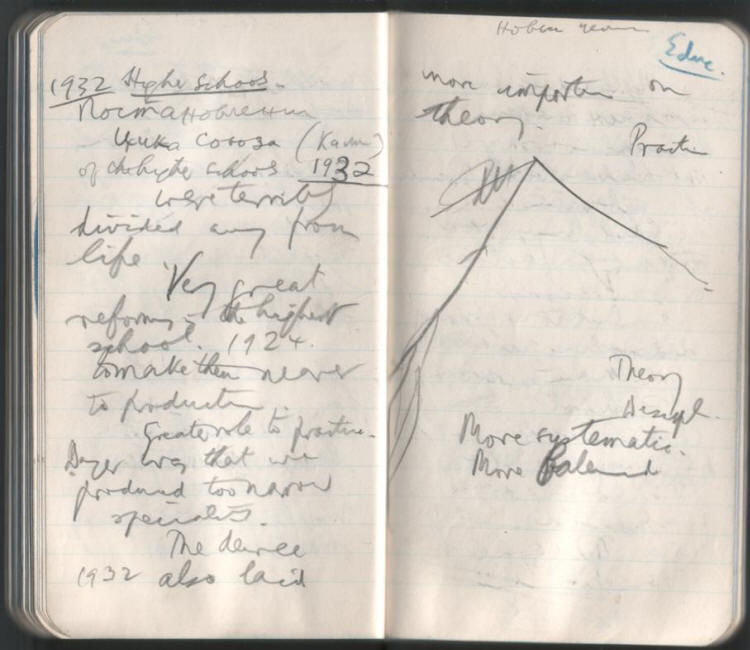 1932 Higher Schools.
Постановлении
Цика Союза (
of the higher schools 1932
were terribly
divided away from
life
Very great
reforms in the highest
school. 1924.
to make them nearer
to production
Greater role to practice.
Danger was that we
produced too narrow
specialists.
The decree
1932 also laid
Educ.
more importance on
theory.
Practice
Theory
More systematic.
More balanced